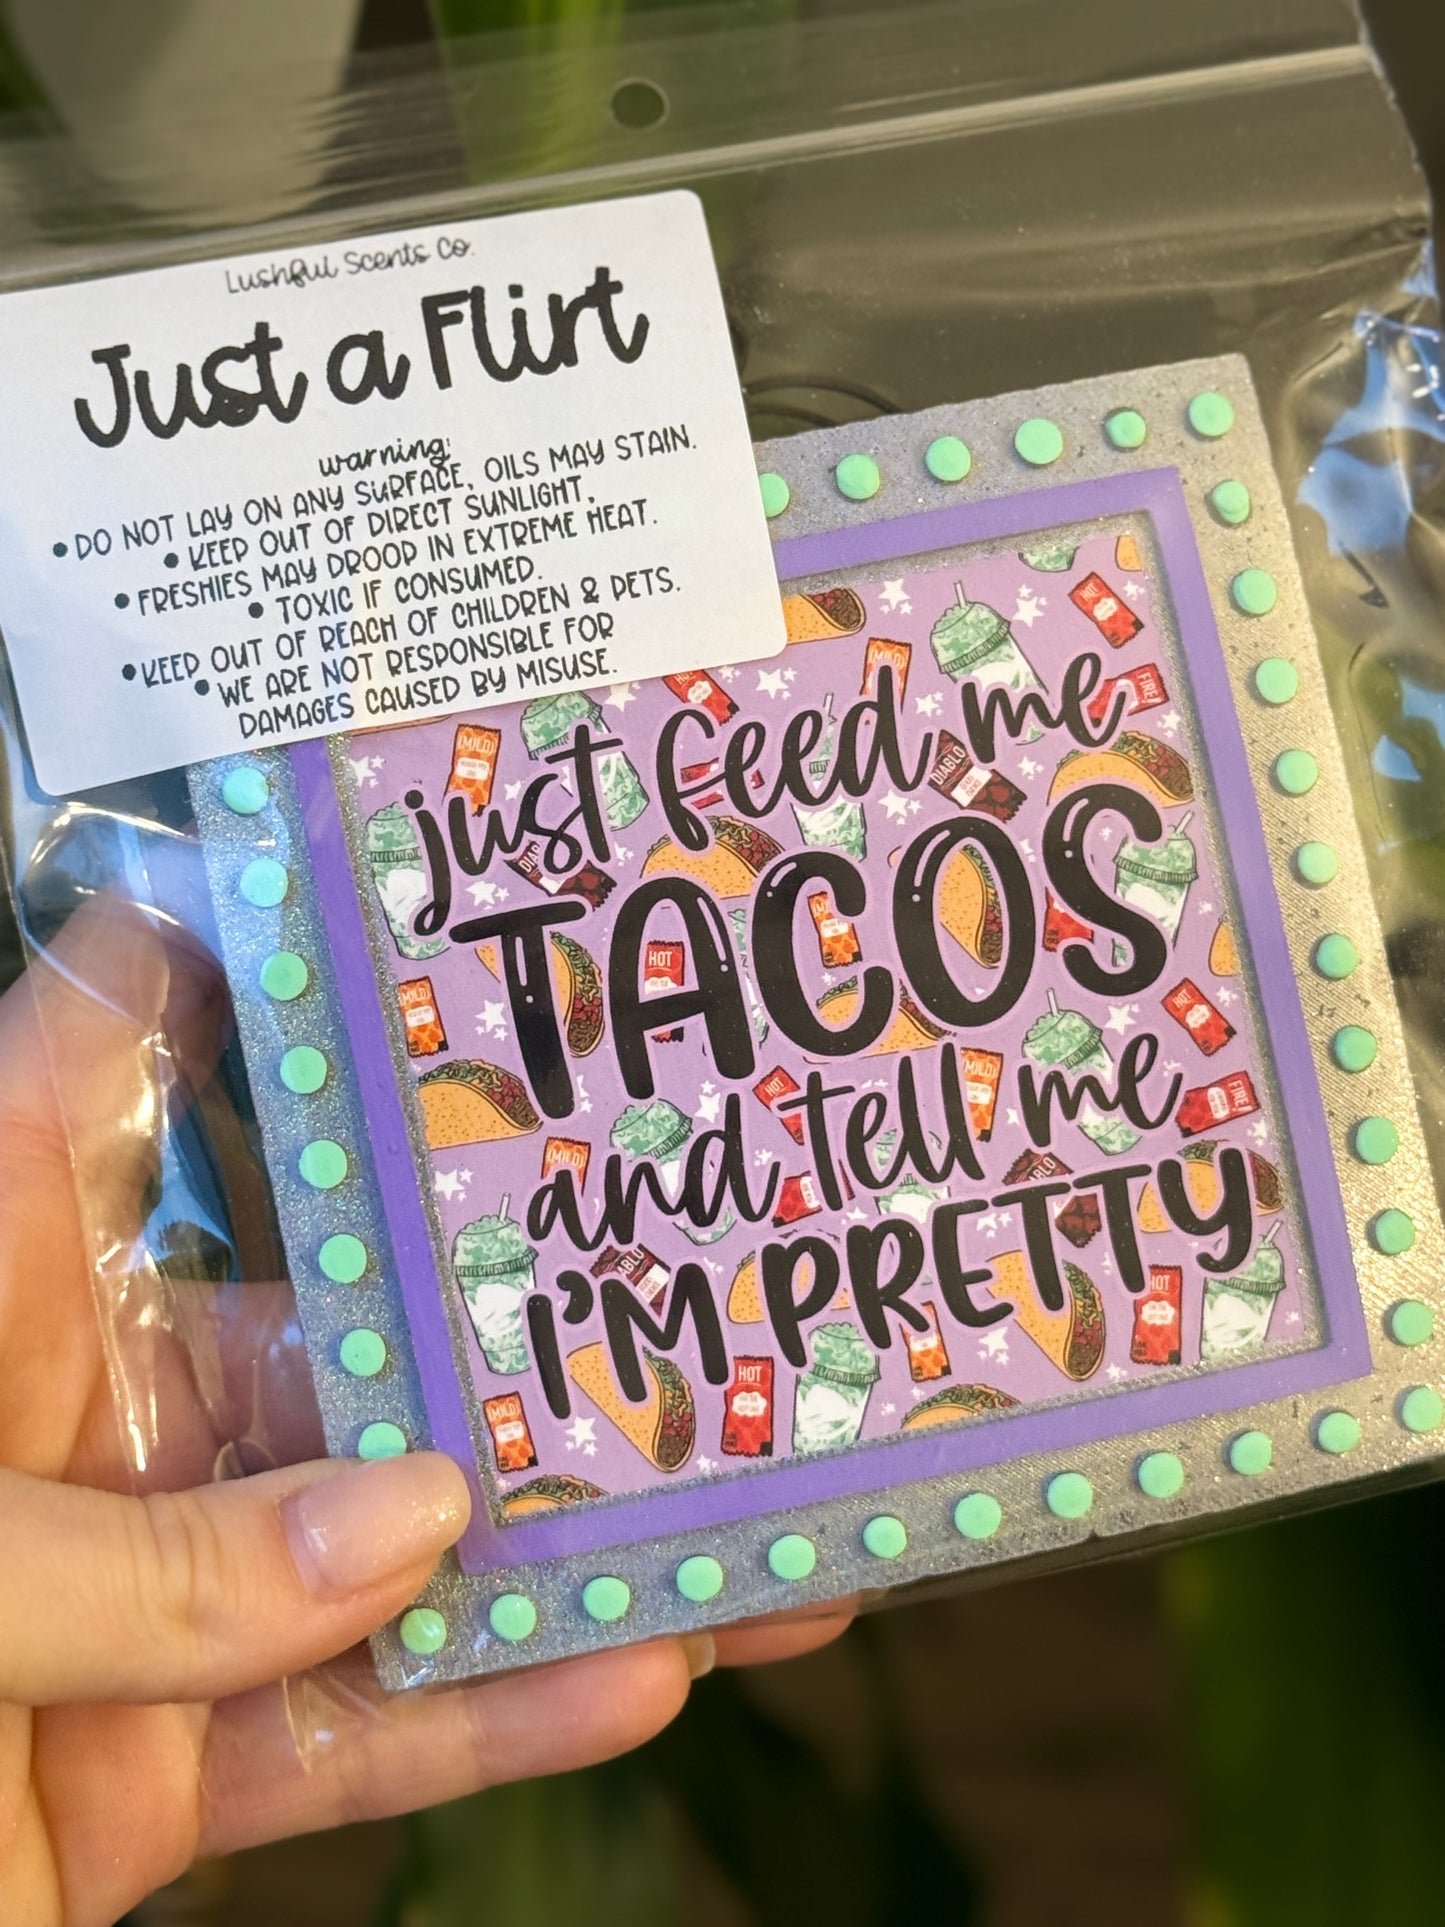 Lushful Scents Co.
Just a Flirt
warning:
• DO NOT LAY ON ANY SURFACE, OILS MAY STAIN.
• KEEP OUT OF DIRECT SUNLIGHT,
• FRESHIES MAY DROOP IN EXTREME HEAT.
• TOXIC IF CONSUMED.
• KEEP OUT OF REACH OF CHILDREN & PETS.
• WE ARE NOT RESPONSIBLE FOR
DAMAGES CAUSED BY MISUSE.
just feed me
TACOS
and tell me
I'M PRETTY
HOT
MILD
HOT
FIRE!
MILD
DIABLO
DIABL
MILD
HOT
MILD
HOT
MILD
HOT
FIRE!
MILD
ABLO
ABLU
HOT
HOT
MILD